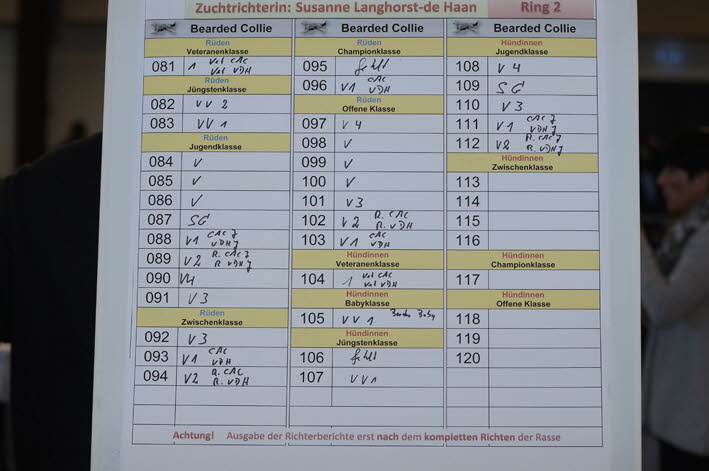 Zuchtrichterin: Susanne Langhorst-de Haan Ring 2
Bearded Collie
Rüden
Veteranenklasse
081 1 Vet CAC
Vet VDH
Rüden
Jüngstenklasse
082 VV 2
083 VV 1
Rüden
Jugendklasse
084 V
085 V
086 V
087 SG
088 V1 CAC J
VDH J
089 V2 R. CAC J
R. VDH J
090 V4
091 V3
Rüden
Zwischenklasse
092 V3
093 V1 CAC
VDH
094 V2 R. CAC
R. VDH
Bearded Collie
Rüden
Championklasse
095 fehlt
096 V1 CAC
VDH
Rüden
Offene Klasse
097 V4
098 V
099 V
100 V
101 V3
102 V2 R. CAC
R. VDH
103 V1 CAC
VDH
Hündinnen
Veteranenklasse
104 1 Vet CAC
Vet VDH
Hündinnen
Babyklasse
105 VV1 Baby
Hündinnen
Jüngstenklasse
106 fehlt
107 VV1
Bearded Collie
Hündinnen
Jugendklasse
108 V 4
109 SG
110 V3
111 V1 CAC J
VDH J
112 V2 R. CAC J
R. VDH J
Hündinnen
Zwischenklasse
113
114
115
116
Hündinnen
Championklasse
117
Hündinnen
Offene Klasse
118
119
120
Achtung! Ausgabe der Richterberichte erst nach dem kompletten Richten der Rasse